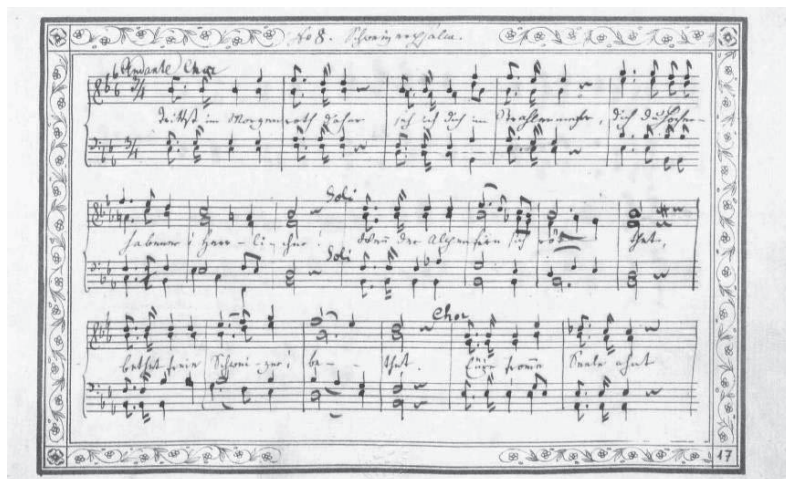 No 8. Schweizerpsalm.
Andante Chor
3/4
trittst im Morgenroth daher seh ich dich im Strahlenmeer, dich du Hocher-
3/4
Soli
habener! Herr-li-cher! Wenn der Alpenfirn sich rö- thet,
Soli
Chor
bethet freie Schweizer! be- - thet. Eure fromme Seele ahnt
17